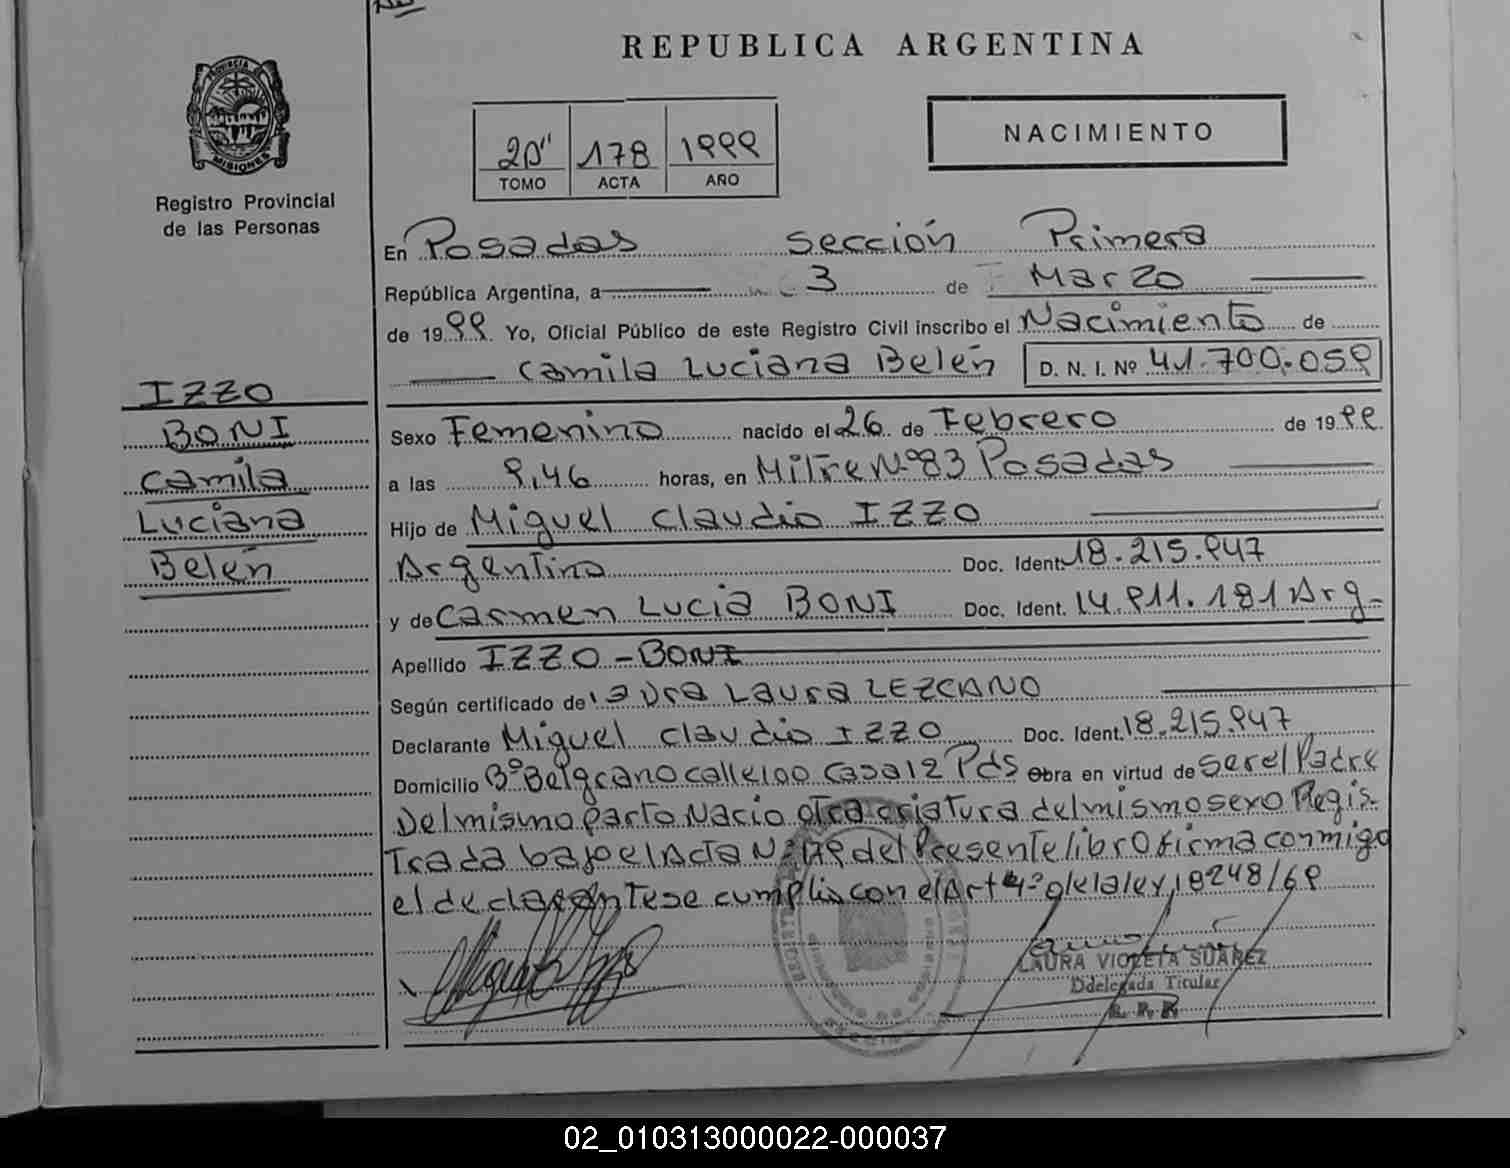 REPUBLICA ARGENTINA
PROVINCIA DE
MISIONES
Registro Provincial
de las Personas
20"
178
1999
TOMO
ACTA
AÑO
NACIMIENTO
En Posadas Sección Primera
República Argentina, a 3 de Marzo
de 1999 Yo, Oficial Público de este Registro Civil inscribo el Nacimiento de
Camila Luciana Belén D. N. I. Nº 41.700.059
IZZO
BONI
Camila
Luciana
Belén
Sexo Femenino nacido el 26 de Febrero de 1999
a las 9,46 horas, en Mitre Nº 83 Posadas
Hijo de Miguel Claudio IZZO
Argentino Doc. Ident. 18.215.947
y de Carmen Lucia BONI Doc. Ident. 14.911.181 Arg-
Apellido IZZO - BONI
Según certificado de la Dra Laura LEZCANO
Declarante Miguel Claudio IZZO Doc. Ident. 18.215.947
Domicilio Bº Belgrano calle 100 Casa 12 Pds Obra en virtud de ser el Padre
Del mismo parto Nacio otra criatura del mismo sexo Regis
trada bajo el Acta Nº 179 del Presente libro firma conmigo
el declarante se cumplio con el Art 4º de la ley 18248/69
LAURA VIOLETA SUAREZ
Ddelegada Titular
R. P. P.
02_010313000022-000037